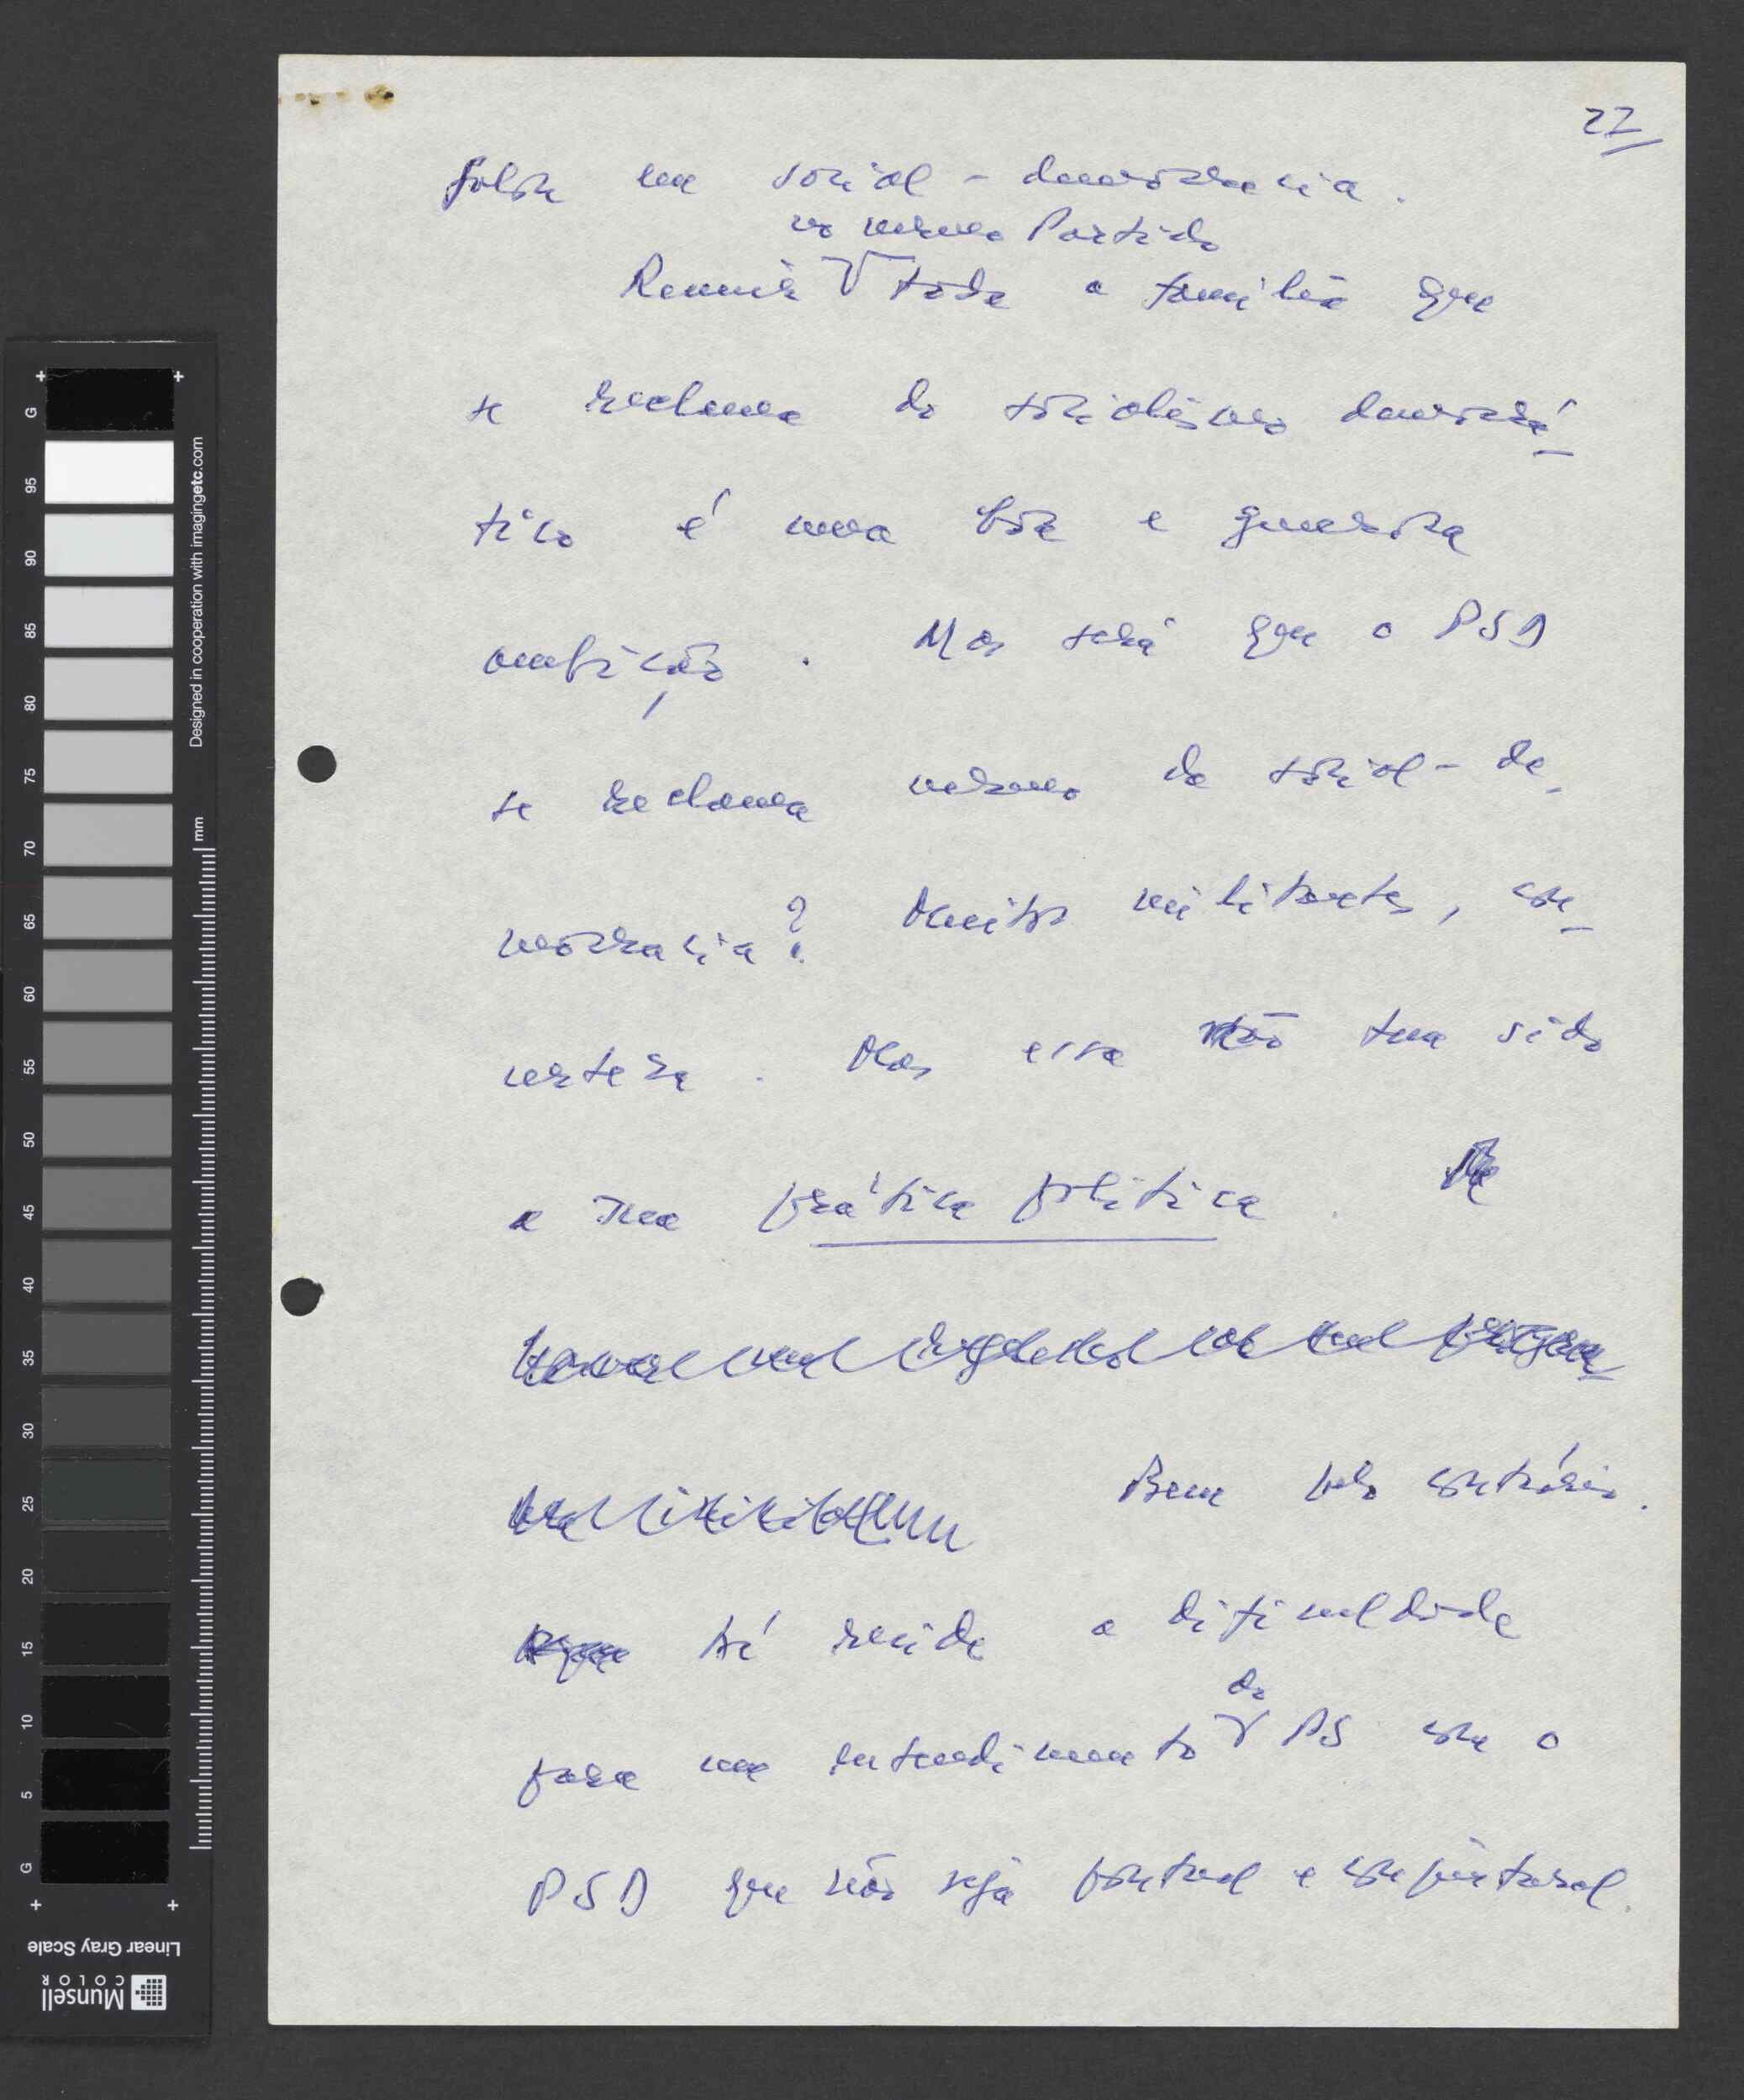 22
falsa em social-democracia.
no mesmo Partido
Reunir toda a família que
se reclama do socialismo democrá-
tico é uma boa e generosa
ambição. Mas será que o PSD
se reclama mesmo da social-de-
mocracia? Muitos militantes, com
certeza. Mas essa não tem sido
a sua prática política.
Bem pelo contrário.
aí reside a dificuldade
do
para um entendimento PS com o
PSD que não seja pontual e conjuntural.
G
95
90
85
80
75
70
65
60
55
50
45
40
35
30
25
20
15
10
5
G
Designed in cooperation with imagingetc.com
mm
Linear Gray Scale
Munsell
COLOR